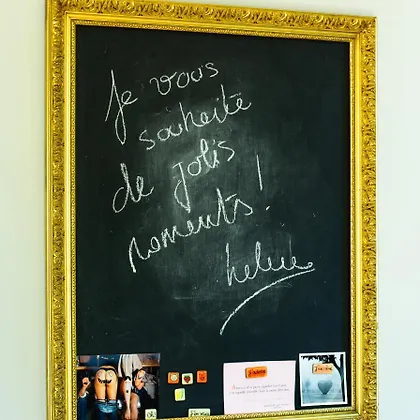 Je vous
souhaite
de jolis
moments!
helene